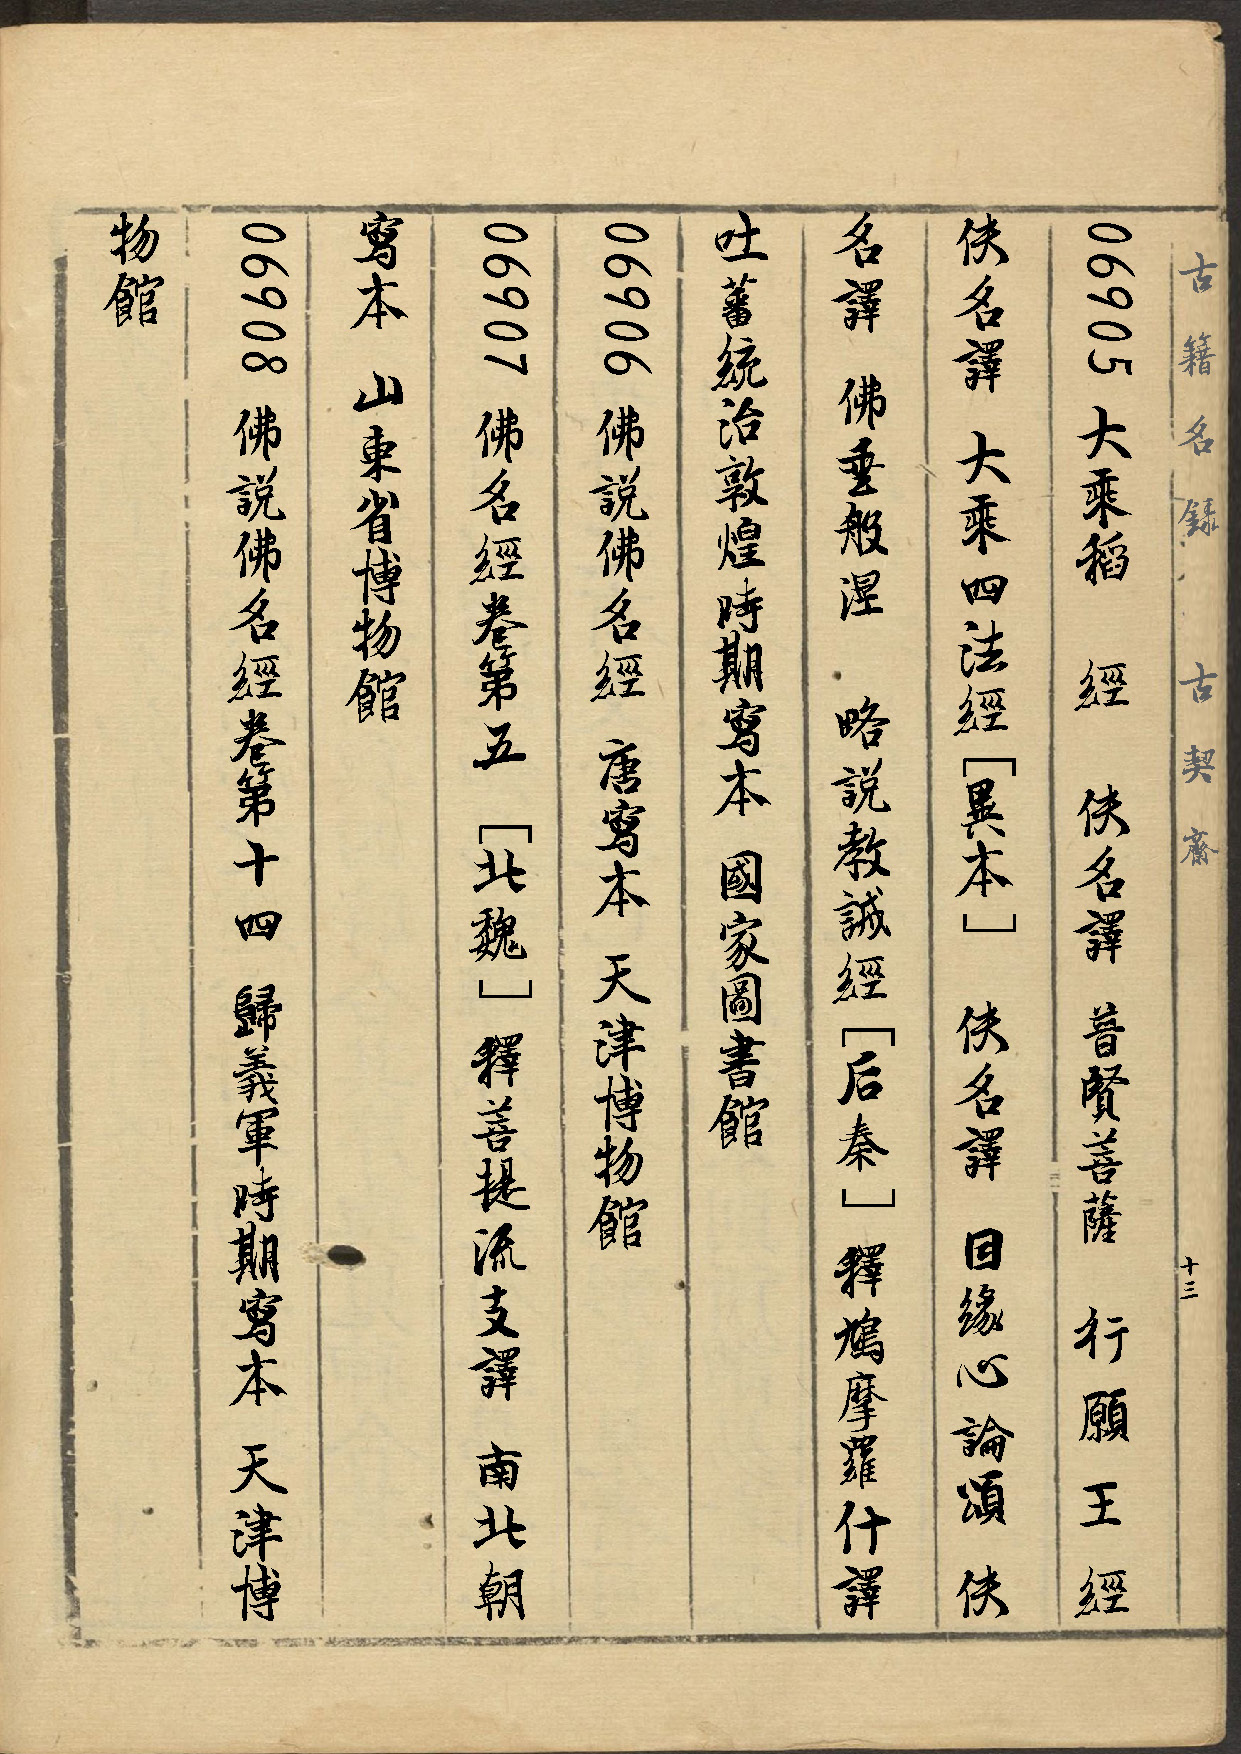 古籍名録 古契齋 十三
06905 大乘稻 經 佚名譯 普賢菩薩 行願王經
佚名譯 大乘四法經[異本] 佚名譯 因緣心論頌 佚
名譯 佛垂般涅 略説教誡經[后秦]釋鳩摩羅什譯
吐蕃統治敦煌時期寫本 國家圖書館
06906 佛説佛名經 唐寫本 天津博物館
06907 佛名經卷第五 [北魏]釋菩提流支譯 南北朝
寫本 山東省博物館
06908 佛説佛名經卷第十四 歸義軍時期寫本 天津博
物館